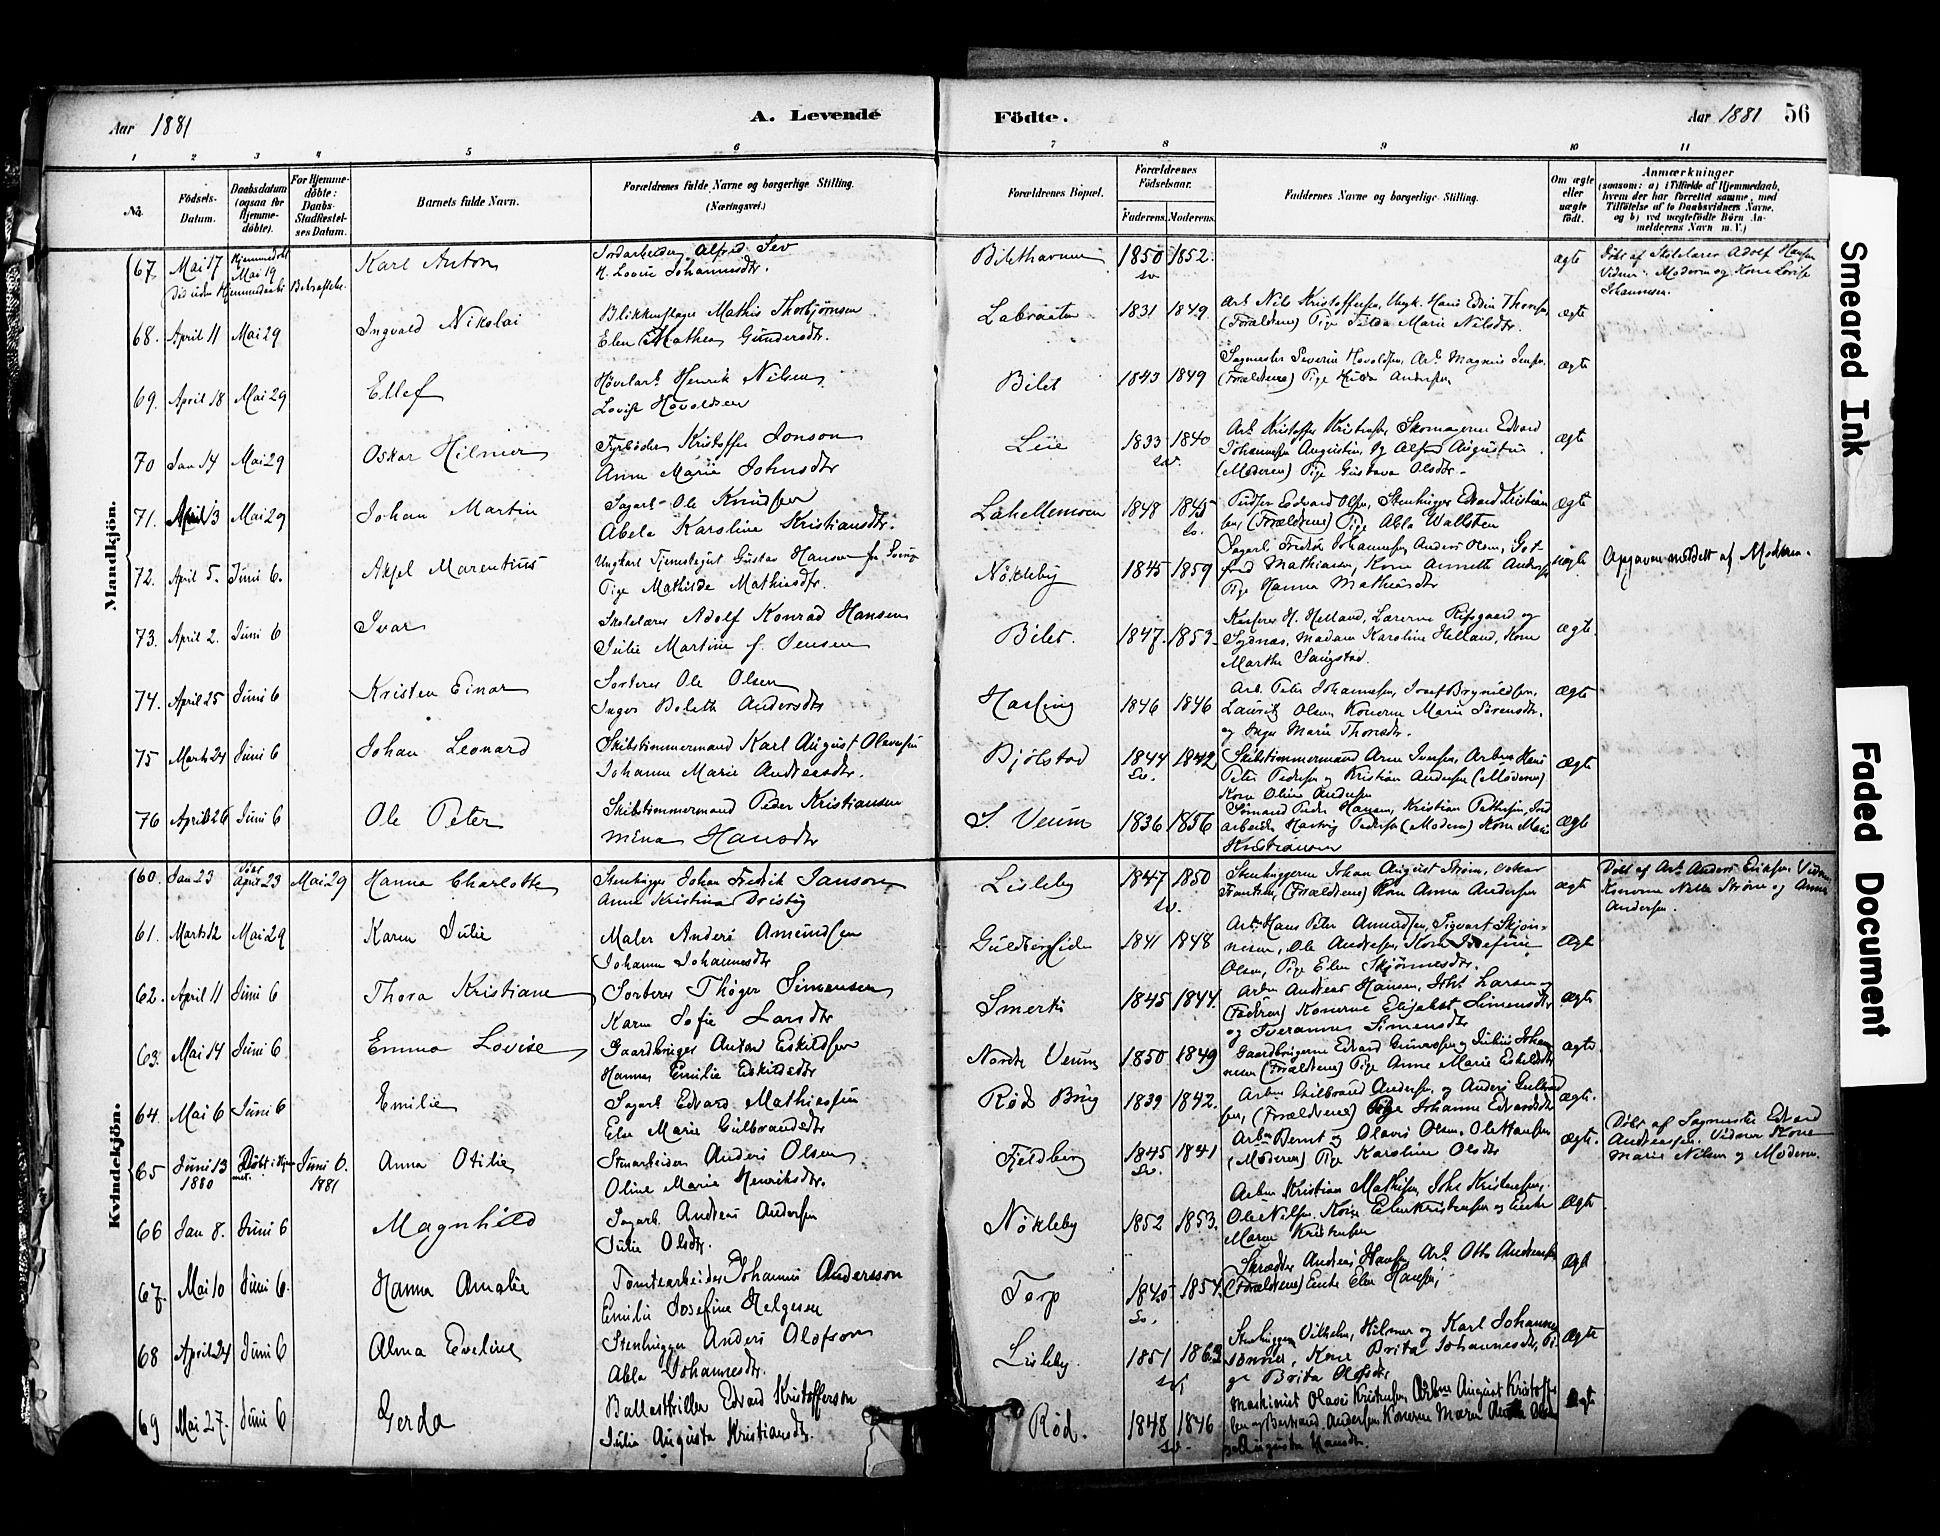 Aar 1881
A. Levende
Födte.
Aar 1881 56
1 2 3 4 5 6 7 8 9 10 11
No.
Födsels-Datum.
Daabsdatum (ogsaa for Hjemme-döbte).
For Hjemme-döbte: Daabs-Stadfæstel-ses Datum.
Barnets fulde Navn.
Forældrenes fulde Navne og borgerlige Stilling. (Næringsvei.)
Forældrenes Bopæl.
Forældrenes Födselsaar.
Faderens. Moderens.
Faddernes Navne og borgerlige Stilling.
Om ægte eller uægte födt.
Anmærkninger
(saasom: a) i Tilfælde af Hjemmedaab, hvem der har forrettet samme, med Tilföielse af to Daabsvidners Navne, og b) ved uægtefödte Börn An-melderens Navn m. V.)
Mandkjön.
67. Mai 17 Hjemmedøbt Mai 19 Karl Anton Alfred Sev 1850 1852. ægte Døbt af Skolelærer Adolf Hansen
Død uden Hjemmedaabs Bekræftelse. K. Lovise Johannesdtr. sv. Vidner: Moderen og Kone Lovise Johannesen.
68. April 11 Mai 29 Ingvald Nikolai Blikkenslager Mathis Thorbjørnsen Labraaten 1831 1849 Arb. Nils Kristoffersen, Ungk. Hans Edvin Thomsen, ægte
Elen Mathea Gundersdtr. (Forældrene) Pige Tilda Marie Nilsdtr.
69. April 18 Mai 29 Ellef Høvelarb. Henrik Nilsen Bilet 1843 1849 Sagmester Severin Havoldsen, Arb. Magnus Jensen, ægte
Lovise Havoldsen (Forældrene) Pige Hulda Andersen
70 Jan 14 Mai 29 Oskar Hilmer Fyrbøder Kristoffer Jonson Leie 1833 1840 Arb. Kristoffer Kristensen, Skomagerne Edvard ægte
Anne Marie Johnsdtr sv. Johannesen Augustin, og Alfred Augustin
(Moderen) Pige Gustava Olsdtr.
71. April 3 Mai 29 Johan Martin Sagarb. Ole Knudsen Lahellemoen 1848 1845 Edvard Olsen, Stenhugger Edvard Kristian- ægte
Abela Karoline Kristiansdtr. sv. sen, (Forældrene) Pige Abla Wallsten
72. April 5. Juni 6. Axsel Marentius Ungkarl Tjenestegut Gustav Hansen fra Sverige Nøkleby 1845 1859 Sagarb. Fredrik Johannesen, Anders Olsen, Got- uægte Opgaven meddelt af Moderen.
Pige Mathilde Mathiasdtr. fred Mathiasen, Kone Annette Andersen
Pige Hanna Mathiasdtr
73. April 2. Juni 6 Ivar Skolelærer Adolf Konrad Hansen Bilet. 1847. 1853. H. Helland, Lærerne Refsgaard og ægte.
Julie Martine f. Jensen Sydnæs, Madam Karoline Helland, Kone
Marthe Sangstad.
74. April 25 Juni 6 Kristen Einar Sorterer Ole Olsen Hasling 1846 1846 Arb. Peter Johannesen, Josef Brynildsen, ægte
Inger Bolette Andersdtr Laurits Olsen, Konerne Marie Sørensdtr.
og Inger Marie Thoresdtr.
75 Marts 24 Juni 6 Johan Leonard Skibstømmermand Karl August Olavesen Bjølstad 1844 1842 Skibstømmermand Arne Iversen, Arbm Hans ægte
Johanne Marie Andreasdtr. sv. Peter Pedersen og Kristian Andersen (Moderen)
Kone Oline Andersen
76 April 26 Juni 6 Ole Peter Skibstømmermand Peder Kristiansen S. Veum 1836 1856 Sømand Peder Hansen, Kristian Pettersen, Jord- ægte
Mina Hansdtr arbeider Hartvig Pedersen (Moderen) Kone Marie
Kristiansen
Kvindekjön.
60. Jan 23 Døbt April 23 Mai 29 Hanna Charlotte Stenhugger Johan Fredrik Janson Lisleby 1847 1850 Stenhuggerne Johan August Strøm, Oskar ægte Døbt af Arb. Anders Eriksen. Vidner
Anna Kristina Dristig sv. Frantsen, (Forældrene) Kone Anna Andersen Konerne Nilla Strøm og Anna Andersen.
61. Marts 12 Mai 29 Karen Julie Maler Anders Amundsen Guldbergsiden 1841 1848 Arb. Hans Peter Amundsen, Sigvart Skjøn- ægte
Johanne Johannesdtr nesen, Ole Andresen, Kone Josefine
Olsen, Pige Elen Skjønnesdtr.
62. April 11 Juni 6 Thora Kristiane Sorterer Thøger Simensen Smerti 1845 1844. Arbm Andreas Hansen, Johs Larsen og ægte
Karen Sofie Larsdtr (Faderen) Konerne Elisabet Simensdtr
og Tveranne Simensdtr
63. Mai 14 Juni 6 Emma Lovise Gaardbruger Anton Eskildsen Nordre Veum 1850. 1849 Gaardbrugerne Edvard Gunnersen og Julius Johan- ægte
Hanna Emilie Eskildsdtr nesen (Forældrene) Pige Anne Marie Eskildsdtr
64. Mai 6 Juni 6 Emilie Sagarb. Edvard Mathiesen Rød Brug 1839 1842. Arbm Gulbrand Andersen og Anders Gulbrand- ægte.
Else Marie Gulbrandsdtr sen, (Forældrene) Pige Johanne Edvardsdtr
65 Juni 13 1880 Døbt i Hjem- met. Juni 6. 1881 Anna Otilie Stenarbeider Anders Olsen Fjeldberg 1845 1841 Arbm Bernt og Olavis Olsen, Ole Hansen ægte. Døbt af Sagmester Edvard
Oline Marie Henriksdtr. sv. (Moderen) Pige Karoline Olsdtr Andreassen. Vidner Kone Marie Nilsen og Moderen.
66 Jan 8. Juni 6 Magnhild Sagarb. Andreas Andersen Nøkleby 1852 1853. Arbm Kristian Mathisen, Johs Kristensen, ægte
Julie Olsdtr. Ole Nilsen, Kone Elen Kristensen og Enke
Maren Kristensen
67. Mai 10 Juni 6. Hanna Amalie Tomtearbeider Johannes Andersson Torp 1845 1854. Skrædder Anders Hansen, Arb. Otto Andreasen ægte
Emilie Josefine Helgesen sv. (Forældrene) Enke Elen Hansen,
68 April 24 Juni 6 Alma Eveline Stenhugger Anders Olofson Lisleby. 1851 1863 Stenhuggerne Vilhelm, Hilmer og Karl Johannes- ægte
Abla Johannesdtr. sv. sønner, Kone Brita Johannesdtr, Pi-
ge Brita Olofsdtr
69 Mai 27. Juni 6 Gerda Ballastskriller Edvard Kristofferson Rød. 1848 1846 Maskinist Olaus Kristensen, Arbm August Kristoffer- ægte
Julia Augusta Kristiansdtr. sv. sen og Bertrand Andersen Konerne Maren
Augusta Hansdtr.
Smeared Ink
Faded Document